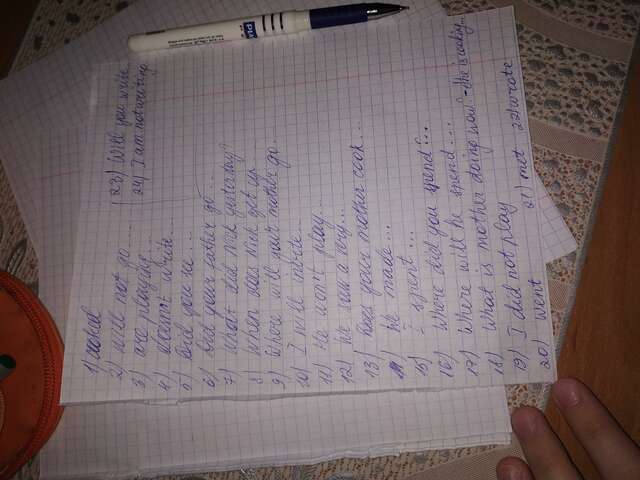 1) cooked
2) will not go ....
3) are playing ...
4) doesn't write ...
5) Did you see ...
6) Did your father go ...
7) What did Nick yesterday?
8) When does Nick get up ...
9) Where will your mother go...
10) I will invite ...
11) He won't play...
12) We saw a very...
13) Does your mother cook ...
14) We made...
15) I spent ...
16) Where did you spend?...
17) Where will he spend ...
18) What is mother doing now? - She is cooking...
19) I did not play
20) went 21) met 22) wrote
23) Will you write
24) I am not writing